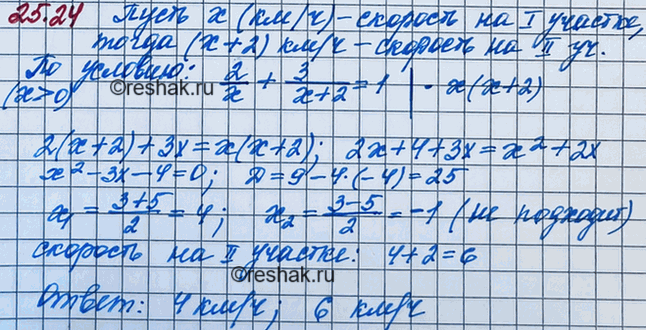 25.24 Пусть х (км/ч) – скорость на I участке,
тогда (х+2) км/ч – скорость на II уч.
По условию: 2/x + 3/(x+2) = 1 | · x(x+2)
(x>0)
©reshak.ru
2(x+2)+3x=x(x+2); 2x+4+3x=x²+2x
x²-3x-4=0; D=9-4·(-4)=25
x₁ = (3+5)/2 = 4; x₂ = (3-5)/2 = -1 (не подходит)
скорость на II участке: 4+2=6
©reshak.ru
Ответ: 4 км/ч; 6 км/ч